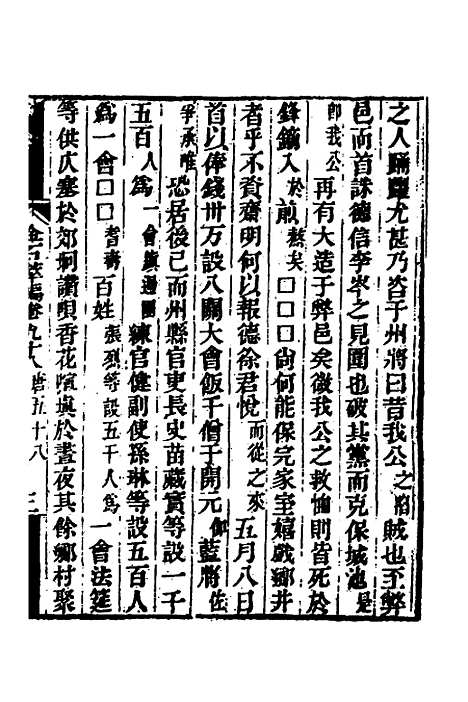 之人踴躍尤甚乃咨于州將曰昔我公之陷賊也不弊
邑而首誅德信李岑之見圍也破其黨而克保城池是
即我公再有大造于弊邑矣微我公之救恤則皆死於
鋒鏑入於煎熬矣□□□尚何能保完家室嬉戲鄉井
者乎不資齋明何以報德徐君悅而從之來五月八日
首以俸錢卅万設八關大會飯千僧于開元伽藍將佐
爭承唯恐居後已而州縣官吏長史苗藏實等設一千
五百人爲一會鎮遏團練官健副使孫琳等設五百人
爲一會□□耆壽百姓張烈等設五千人爲一會法筵
等供仄塞於郊坰讚唄香花喧填於晝夜其餘鄉村聚
金石萃編卷九十八 唐五十八 三